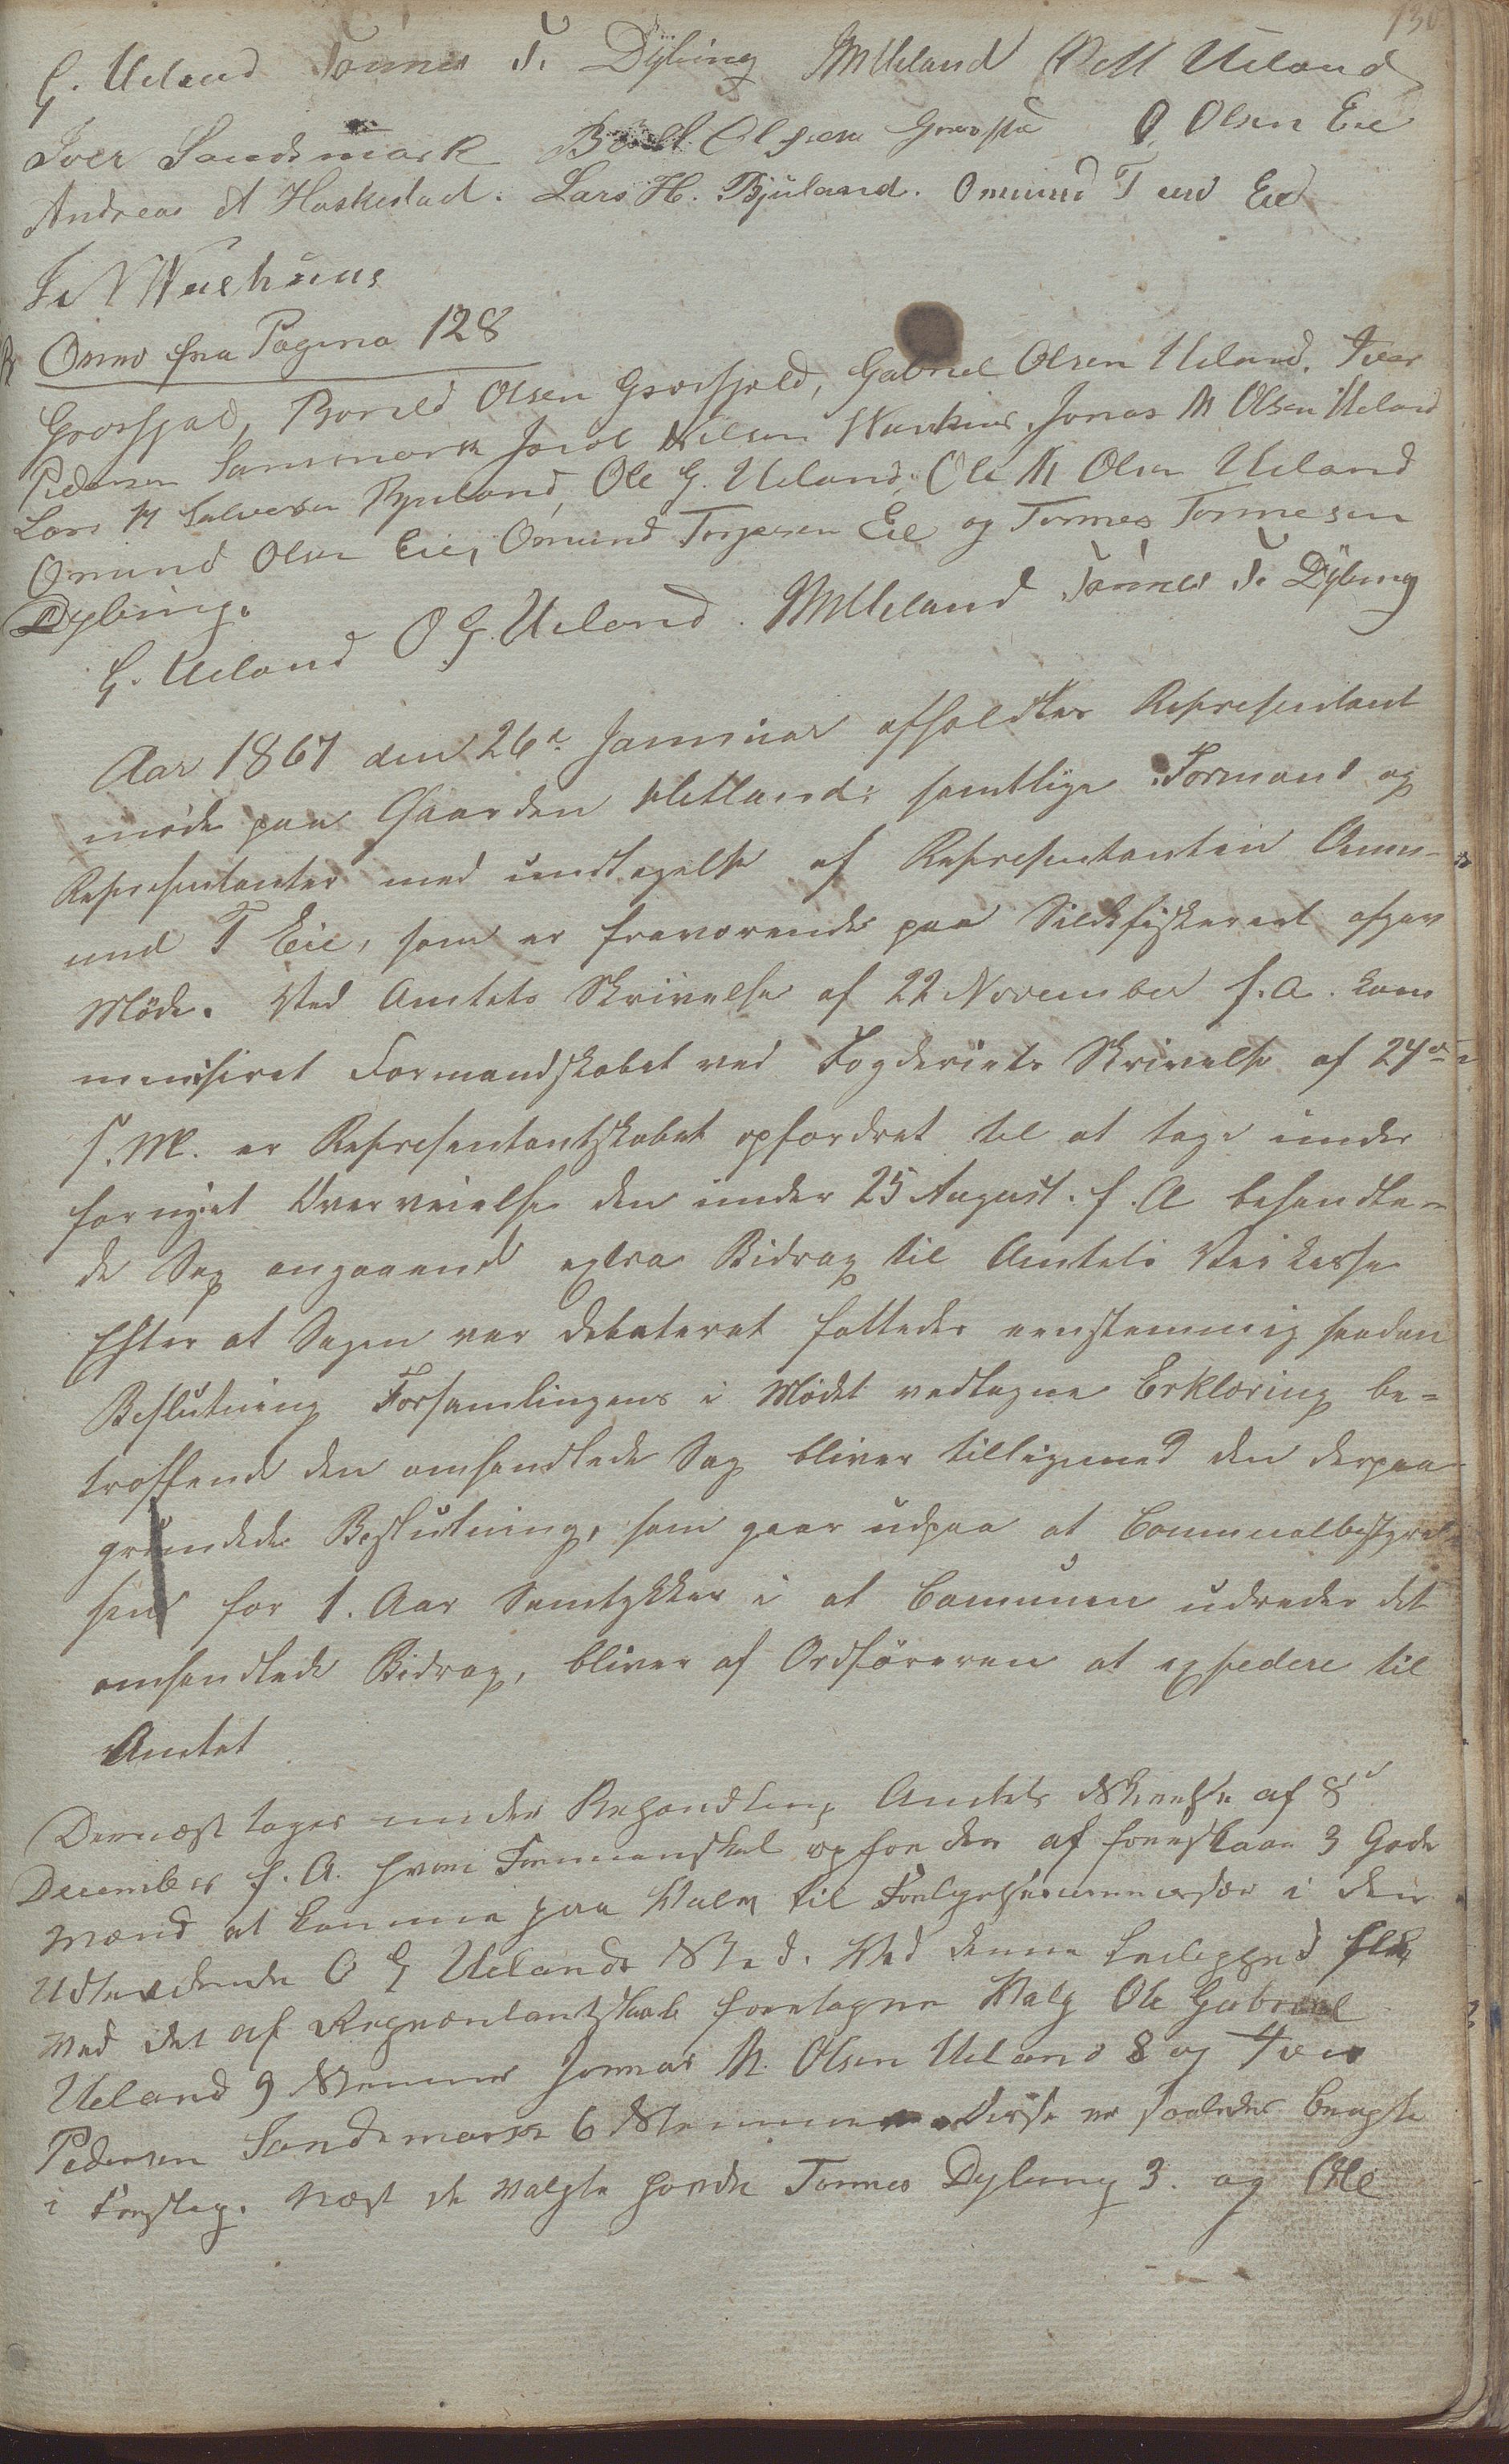 130
G. Ueland Tønnes T. Dybing JMUeland OMUeland
Iver Sandsmark Boild Olsen O. Olsen Eie
Andreas A Haskestad. Lars H. Bjuland. Omund T Eie
J. N Waehuus
Omo fra Pagina 128
Grosfjæld, Boruld Olsen Grosfjeld, Gabriel Olsen Ueland. Iver
Pedersen Sansmark Jacob Nilsen Jonas M Olsen Ueland
Lars H Salvesen Bjuland, Ole G. Ueland, Ole M Olsen Ueland
Omund Olsen Eie, Omund Torjersen Eie og Tønnes Tønnesen
Dybing.
G. Ueland O G. Ueland. JMUeland Tønnes T. Dybing
Aar 1867 den 26de Januar afholdtes Representant
møde paa Gaarden Hetland; samtlige Formænd og
Representanter med undtagelse af Representanten Omm-
und T Eie, som er fraværende paa Sildefiskeriet afgav
Møde. Ved Amtets Skrivelse af 22 November f.A. kom
muniseret Formandskabet ved Fogderiets Skrivelse af 24de
s.M. er Representantskabet opfordret til at tage under
fornyet Overveielse den under 25 August. f.A behandle-
de Sag angaaend extra Bidrag til Amtets Veikasse
Efter at Sagen var debateret fattedes eenstemmig saadan
Beslutning Forsamlingens i Mødet vedtagne Erklæring be-
træffende den omhandlede Sag bliver tilligemed den derpaa
grundede Beslutning, som gaar udpaa at Communalbestyrel
sen for 1. Aar Samtykker i at Communen udreder det
omhandlede Bidrag, bliver af Ordføreren at expedere til
Amtet
Dernæst toges under Behandling Amtets Skrivelse af 8de
December f.A. hvori Formanskabet opfordres af foreslaae 3 Gode
Mænd at komme paa Valg til Forligelsescommissær i den
Udtrædende O G Uelands Sted. Ved denne Leilighed
ved det af Representantskabet foretagne Valg Ole Gabriel
Ueland 9 Stemmer Jonnas M. Olsen Ueland 8 og Iver
Pedersen Sandsmark 6 Stemmer Disse er saaledes bragte
i Forslag. Næst de Valgte havde Tønnes Dybing 3. og Ole